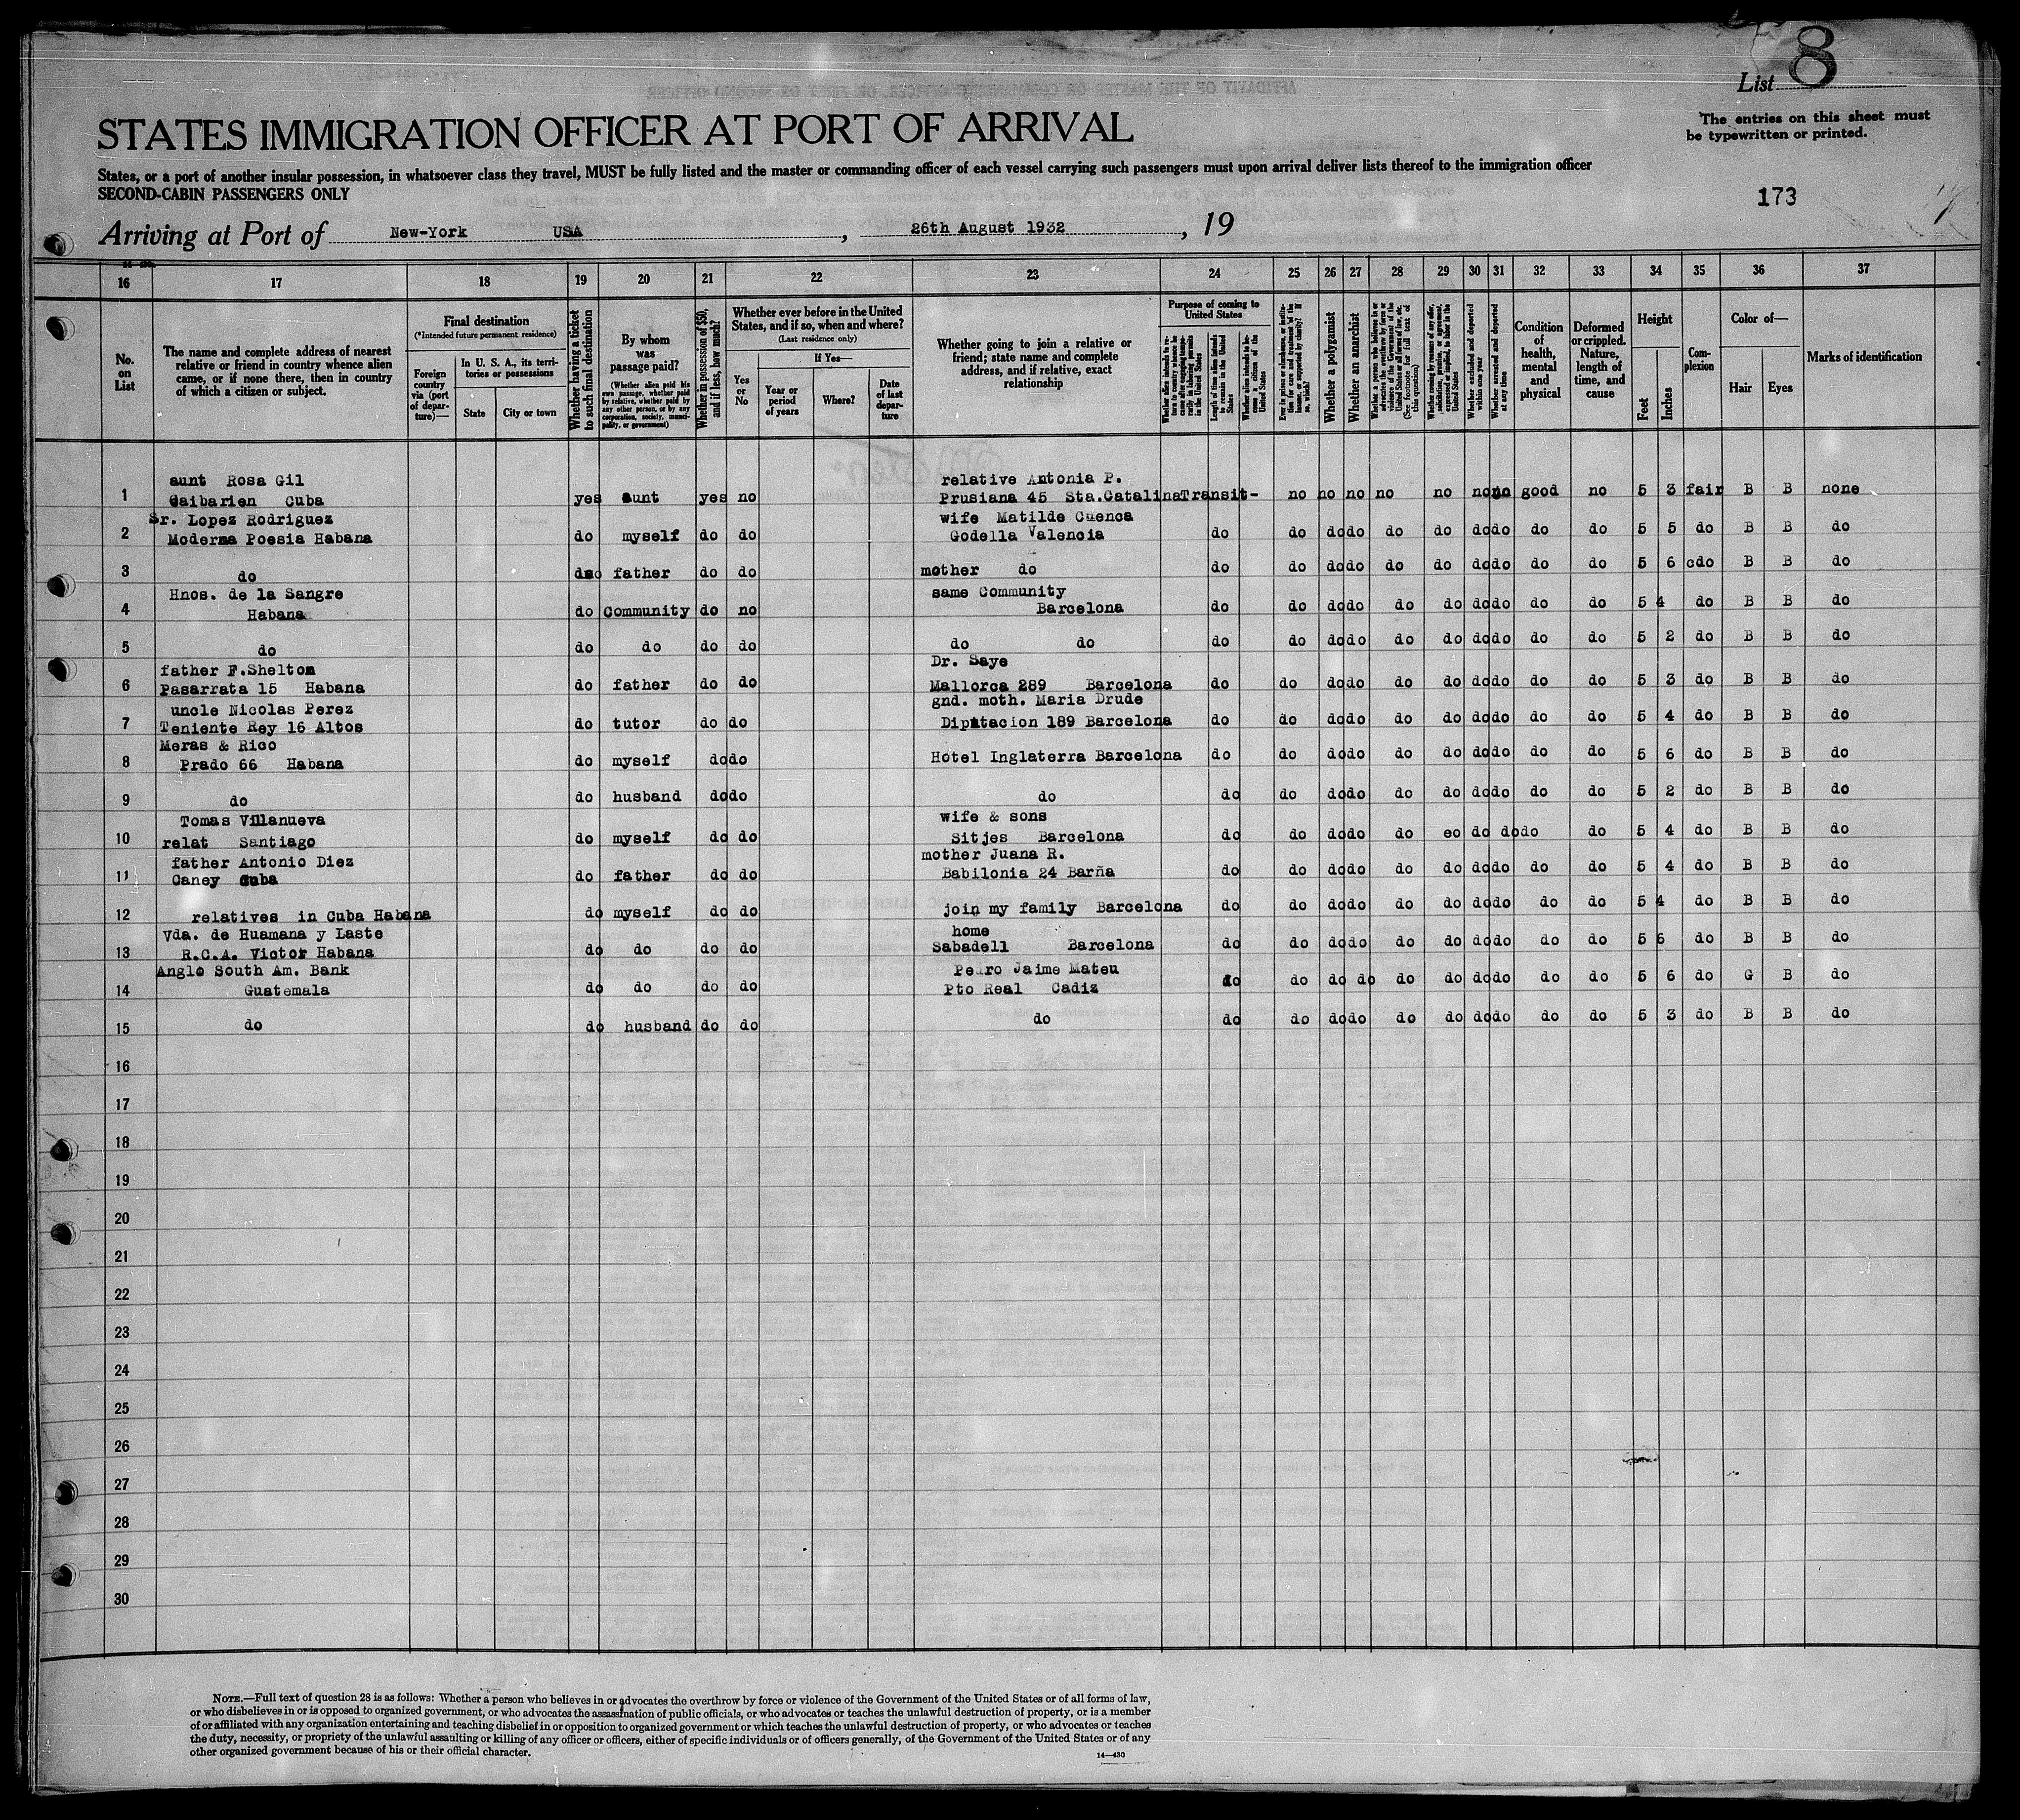 List 8
The entries on this sheet must
be typewritten or printed.
STATES IMMIGRATION OFFICER AT PORT OF ARRIVAL
States, or a port of another insular possession, in whatsoever class they travel, MUST be fully listed and the master or commanding officer of each vessel carrying such passengers must upon arrival deliver lists thereof to the immigration officer
SECOND-CABIN PASSENGERS ONLY
173
Arriving at Port of New-York USA, 26th August 1932, 19
16 17 18 19 20 21 22 23 24 25 26 27 28 29 30 31 32 33 34 35 36 37
No. on List
The name and complete address of nearest relative or friend in country whence alien came, or if none there, then in country of which a citizen or subject.
Final destination
(*Intended future permanent residence)
Foreign country via (port of departure)—
In U. S. A., its territories or possessions
State
City or town
Whether having a ticket to such final destination
By whom was passage paid?
(Whether alien paid his own passage, whether paid by relative, whether paid by any other person, or by any corporation, society, municipality, or government)
Whether in possession of $50, and if less, how much?
Whether ever before in the United States, and if so, when and where?
(Last residence only)
Yes or No
If Yes—
Year or period of years
Where?
Date of last departure
Whether going to join a relative or friend; state name and complete address, and if relative, exact relationship
Purpose of coming to United States
Whether alien intends to return to country whence he came after engaging temporarily in laboring pursuits in the United States
Length of time alien intends to remain in the United States
Whether alien intends to become a citizen of the United States
Ever in prison or almshouse, or institution for care and treatment of the insane, or supported by charity? If so, which?
Whether a polygamist
Whether an anarchist
Whether a person who believes in or advocates the overthrow by force or violence of the Government of the United States or all forms of law, etc. (See footnote for full text of this question)
Whether coming by reason of any offer, solicitation, promise, or agreement, expressed or implied, to labor in the United States
Whether excluded and deported within one year
Whether arrested and deported at any time
Condition of health, mental and physical
Deformed or crippled. Nature, length of time, and cause
Height
Feet
Inches
Complexion
Color of—
Hair
Eyes
Marks of identification
aunt Rosa Gil relative Antonia P.
1 Caibarien Cuba yes aunt yes no Prusiana 45 Sta.Catalina Transit- no no no no no no no good no 5 3 fair B B none
Sr. Lopez Rodriguez wife Matilde Cuenca
2 Moderna Poesia Habana do myself do do Godella Valencia do do do do do do do do do do 5 5 do B B do
3 do do father do do mother do do do do do do do do do do do 5 6 do B B do
Hnos. de la Sangre same Community
4 Habana do Community do no Barcelona do do do do do do do do do do 5 4 do B B do
5 do do do do do do do do do do do do do do do do do 5 2 do B B do
father F.Shelton Dr. Saye
6 Pasarrata 15 Habana do father do do Mallorca 289 Barcelona do do do do do do do do do do 5 3 do B B do
uncle Nicolas Perez gnd. moth. Maria Drude
7 Teniente Rey 16 Altos do tutor do do Diputacion 189 Barcelona do do do do do do do do do do 5 4 do B B do
Meras & Rico
8 Prado 66 Habana do myself do do Hotel Inglaterra Barcelona do do do do do do do do do do 5 6 do B B do
9 do do husband do do do do do do do do do do do do do 5 2 do B B do
Tomas Villanueva wife & sons
10 relat Santiago do myself do do Sitjes Barcelona do do do do do eo do do do do 5 4 do B B do
father Antonio Diez mother Juana R.
11 Caney Cuba do father do do Babilonia 24 Barña do do do do do do do do do do 5 4 do B B do
12 relatives in Cuba Habana do myself do do join my family Barcelona do do do do do do do do do do 5 4 do B B do
Vda. de Huamana y Laste home
13 R.C.A. Victor Habana do do do do Sabadell Barcelona do do do do do do do do do do 5 6 do B B do
Anglo South Am. Bank Pedro Jaime Mateu
14 Guatemala do do do do Pto Real Cadiz do do do do do do do do do do 5 6 do G B do
15 do do husband do do do do do do do do do do do do do 5 3 do B B do
16
17
18
19
20
21
22
23
24
25
26
27
28
29
30
NOTE.—Full text of question 28 is as follows: Whether a person who believes in or advocates the overthrow by force or violence of the Government of the United States or of all forms of law,
or who disbelieves in or is opposed to organized government, or who advocates the assassination of public officials, or who advocates or teaches the unlawful destruction of property, or is a member
of or affiliated with any organization entertaining and teaching disbelief in or opposition to organized government or which teaches the unlawful destruction of property, or who advocates or teaches
the duty, necessity, or propriety of the unlawful assaulting or killing of any officer or officers, either of specific individuals or of officers generally, of the Government of the United States or of any
other organized government because of his or their official character.
14—430